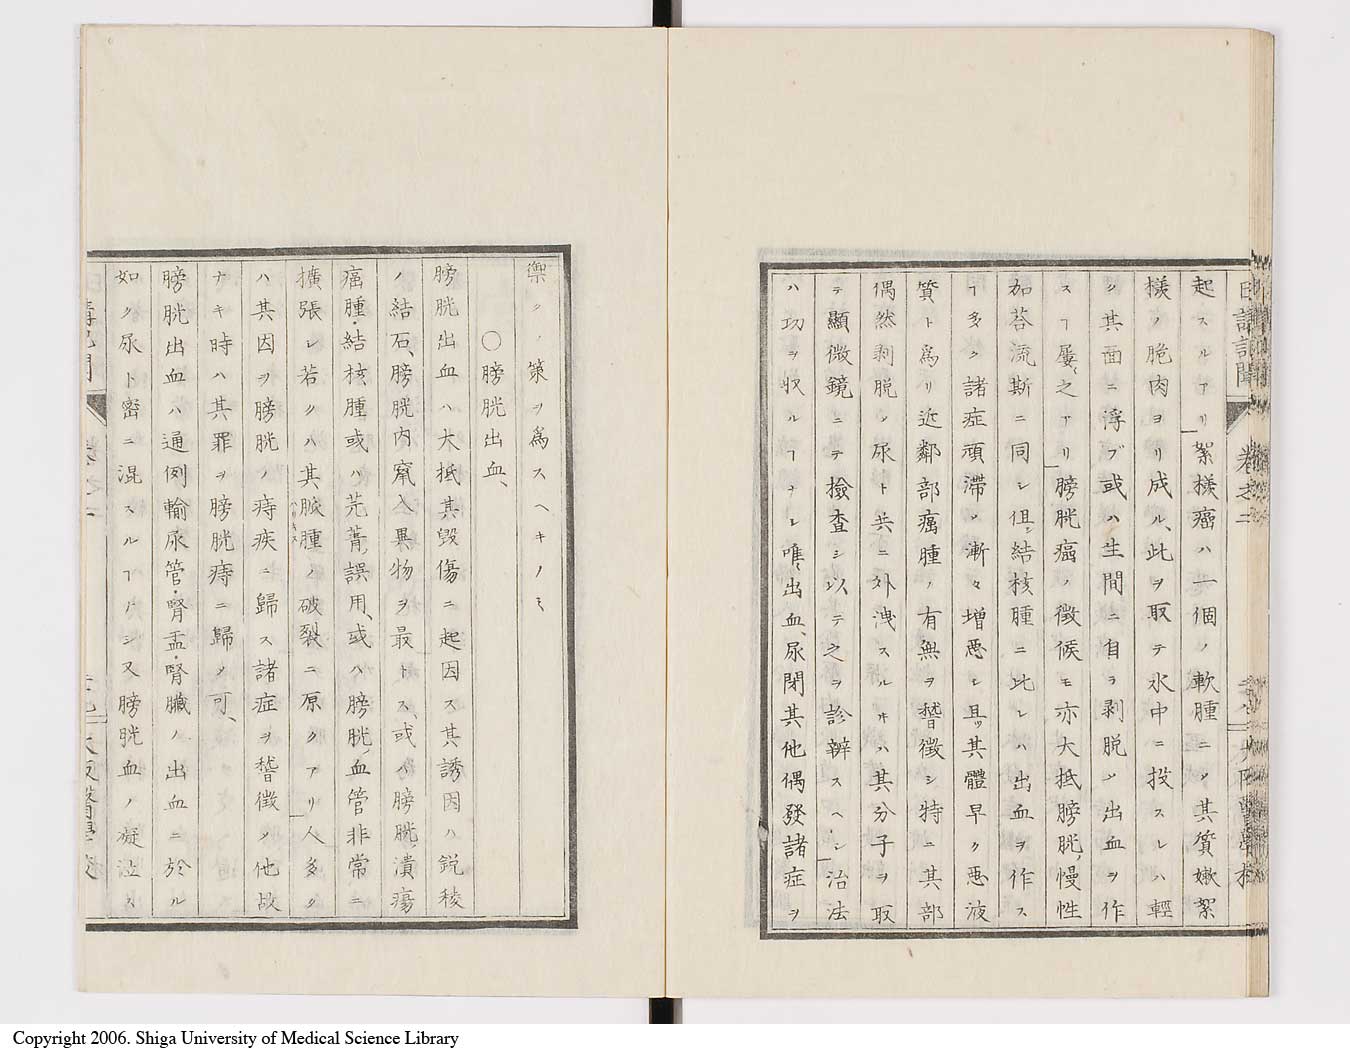 日講記聞 卷之二 大阪醫學校
起スルアリ絮樣癌ハ一個ノ軟腫ニメ其質嫩絮
樣ノ脆肉ヨリ成ル此ヲ取テ水中ニ投スレハ輕
ク其面ニ浮ブ或ハ生間ニ自ラ剥脱メ出血ヲ作
スヿ屢之アリ膀胱癌ノ徴候モ亦大抵膀胱慢性
加荅流斯ニ同シ但結核腫ニ比レハ出血ヲ作ス
ヿ多ク諸症頑滞メ漸々増悪シ且ツ其體早ク悪液
質ト爲リ近鄰部癌腫ノ有無ヲ瞀徴シ特ニ其部
偶然剥脱メ尿ト共ニ外洩スルヰハ其分子ヲ取
テ顯微鏡ニテ撿査シ以テ之ヲ診辨スヘシ治法
ハ功ヲ收ルヿナシ唯出血尿閉其他偶發諸症ヲ
禦クノ策ヲ爲スヘキノミ
〇膀胱出血
膀胱出血ハ大抵其毀傷ニ起因ス其誘因ハ鋭稜
ノ結石膀胱内竄入異物ヲ最トス或ハ膀胱潰瘍
癌腫・結核腫或ハ芫菁誤用或ハ膀胱血管非常ニ
擴張シ若クハ其脈腫ノ破裂ニ原クアリ人多ク
ハ其因ヲ膀胱ノ痔疾ニ歸ス諸症ヲ瞀徴メ他故
ナキ時ハ其罪ヲ膀胱痔ニ歸メ可
膀胱出血ハ通例輸尿管・腎盂・腎臓ノ出血ニ於ル
如ク尿ト密ニ混スルヿナシ又膀胱血ノ凝泣ス
日講記聞 卷之二 大阪醫學校
Copyright 2006. Shiga University of Medical Science Library